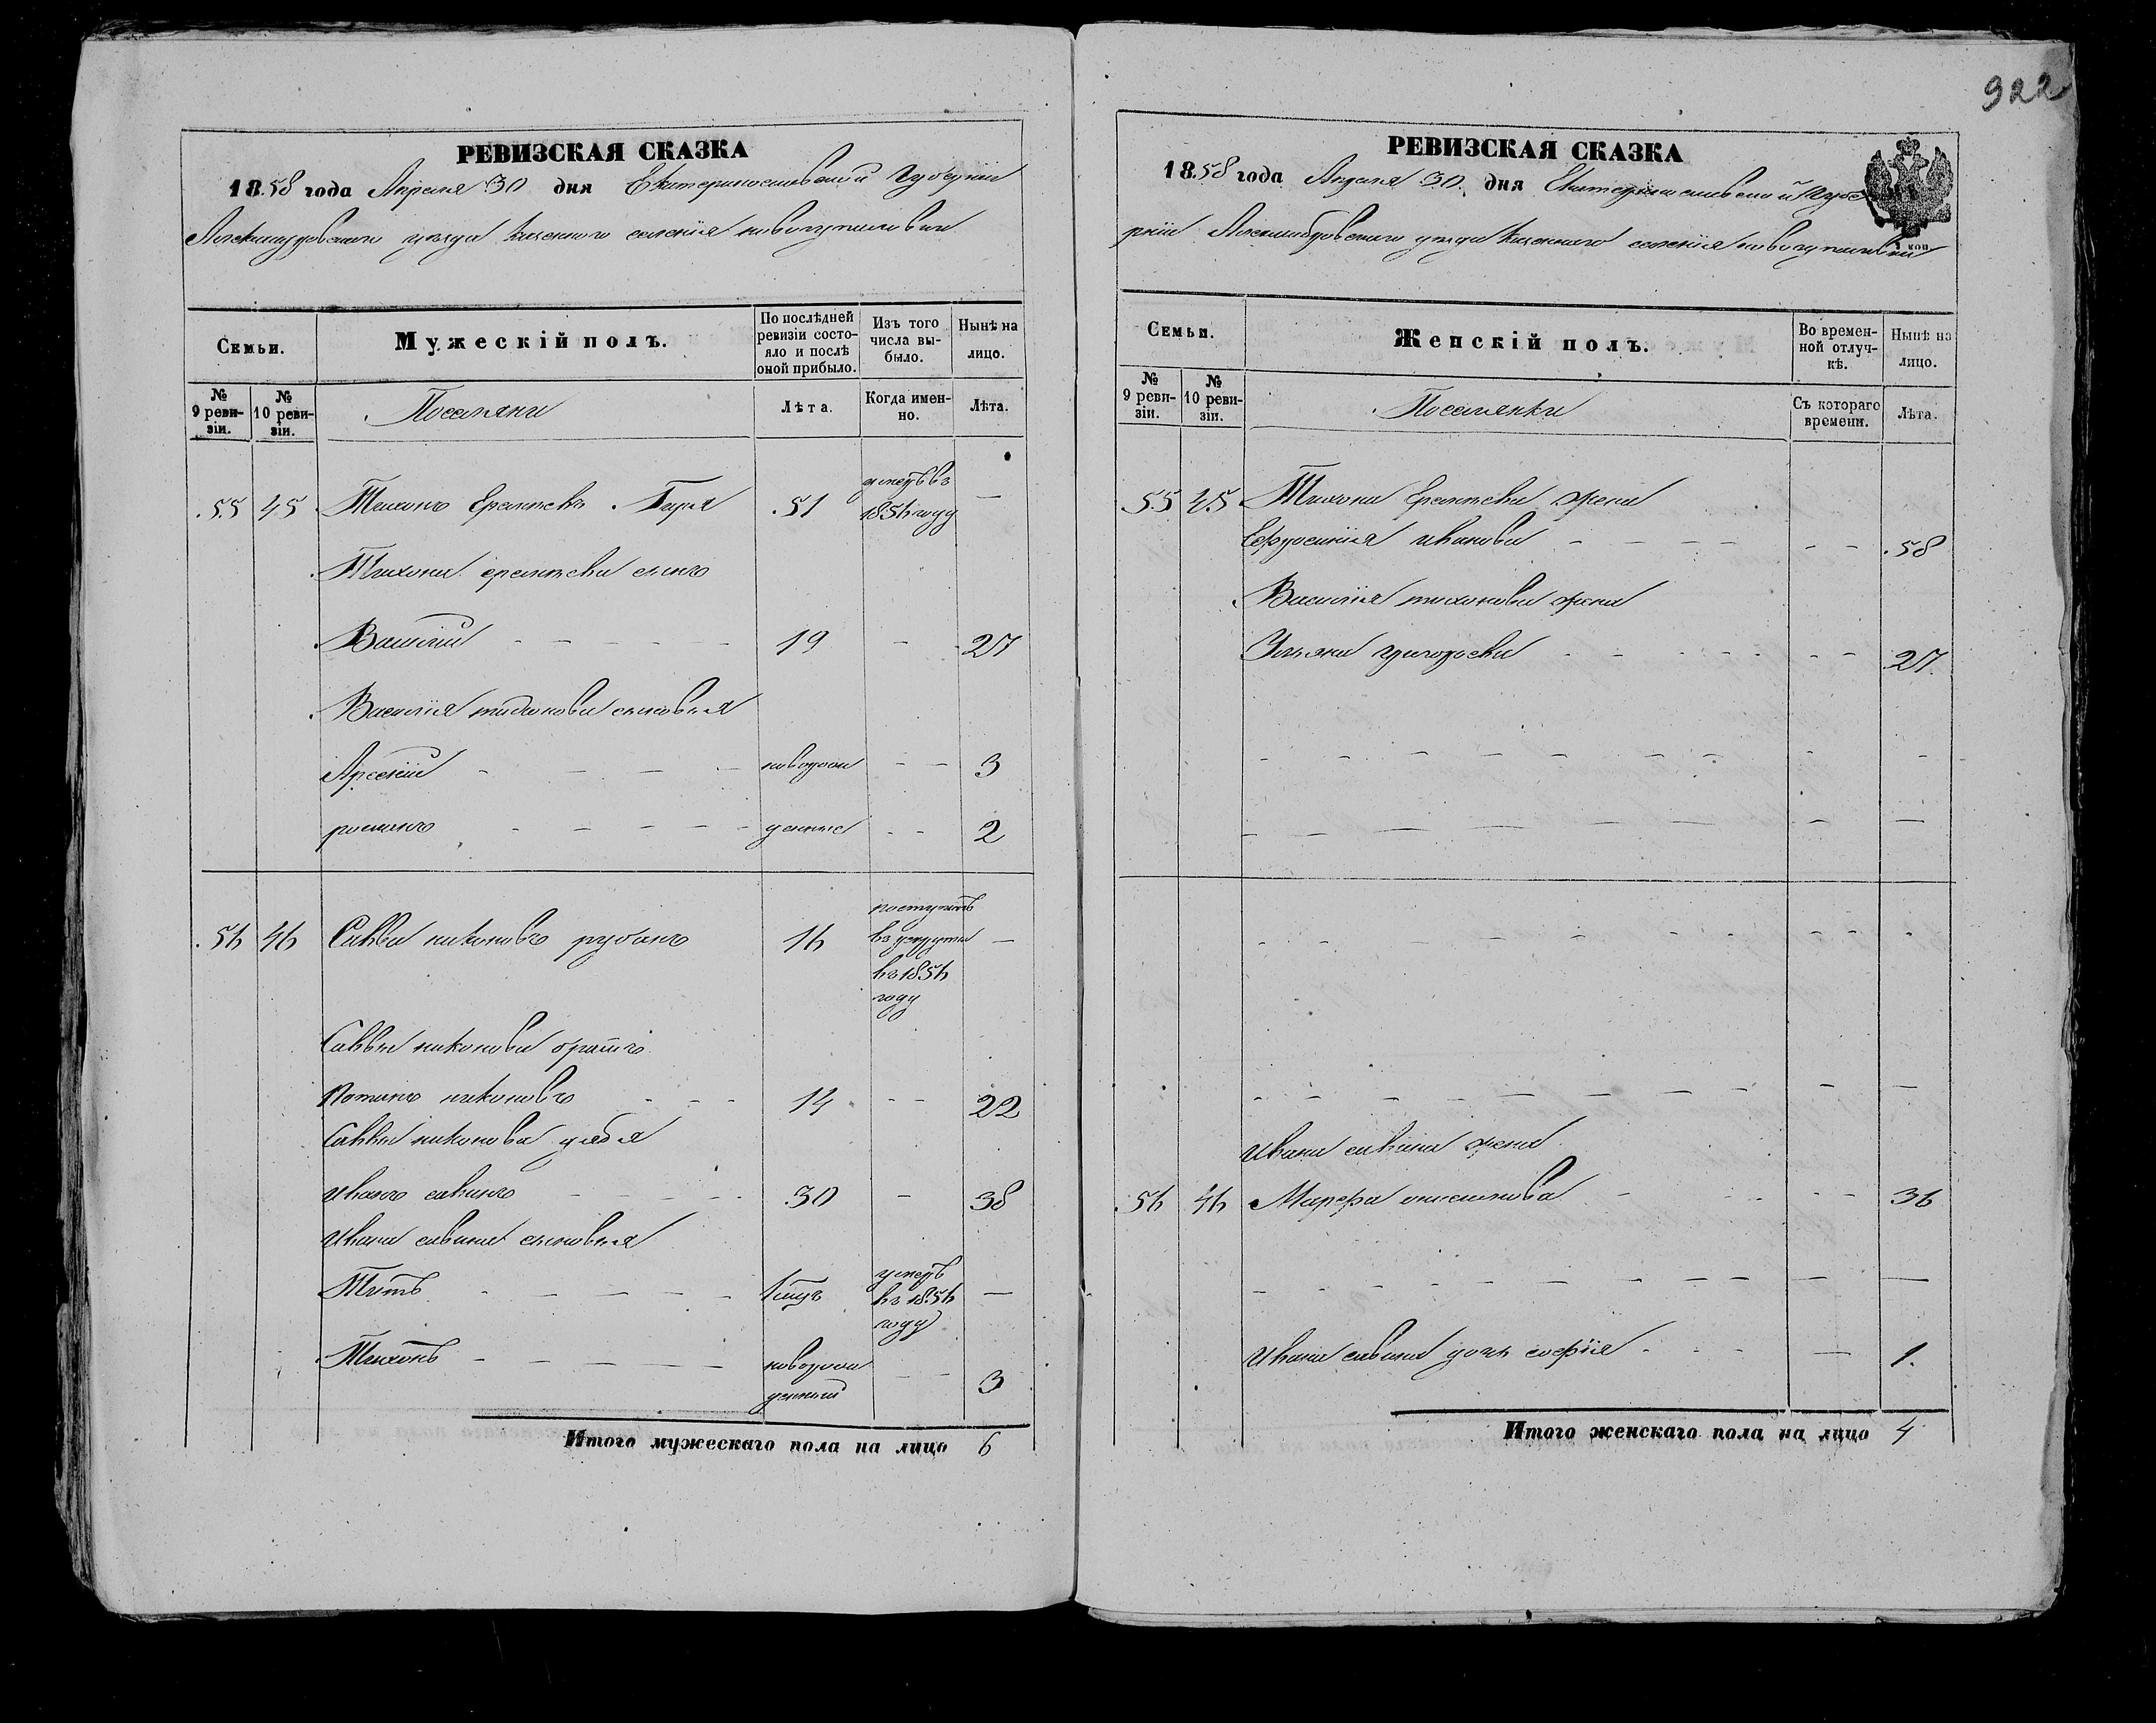 922
РЕВИЗСКАЯ СКАЗКА
1858 года Апреля 30 дня Екатеринославской Губернии
Александровского уезда Казенного селения новогупаловки
Семьи.
Мужескій полъ.
По послѣдней ревизіи состояло и послѣ оной прибыло.
Изъ того числа выбыло.
Нынѣ на лицо.
№ 9 ревизіи.
№ 10 ревизіи.
Поселяне
Лѣта.
Когда именно.
Лѣта.
55 45 Тихонъ Еремеевъ 51 умеръ въ 1856 году —
Тихона еремеева сынъ
Василий - - - - - 19 - 27
Василия тихонова сыновья
Арсений - - - - новорож - - 3
романъ - - - - - денные - - 2
56 46 Савва никоновъ рубанъ 16 поступилъ в рекруты въ 1856 году —
Саввы никонова братъ
никоновъ - - - 14 - - 22
Саввы никонова дядя
иванъ савинъ - - - - 30 - 38
ивана савина сыновья
Титъ - - - - - умеръ въ 1856 году —
Тихонъ - - - - - новорож денный - - 3
Итого мужескаго пола на лицо 6
РЕВИЗСКАЯ СКАЗКА
1858 года Апреля 30 дня Екатеринославской Губе
рнии Александровского уезда Казенного селения новогупаловки
Семьи.
Женскій полъ.
Во временной отлучкѣ.
Нынѣ на лицо.
№ 9 ревизіи.
№ 10 ревизіи.
Поселянки
Съ котораго времени.
Лѣта.
55 45 Тихона Еремеева жена
Ефросиния иванова - - - - - - 58
Василия тихонова жена
Ульяна григорьева - - - - - - 27
ивана савина жена
56 46 Марфа - - - - 36
ивана савина дочь софия - - - — 1
Итого женскаго пола на лицо 4